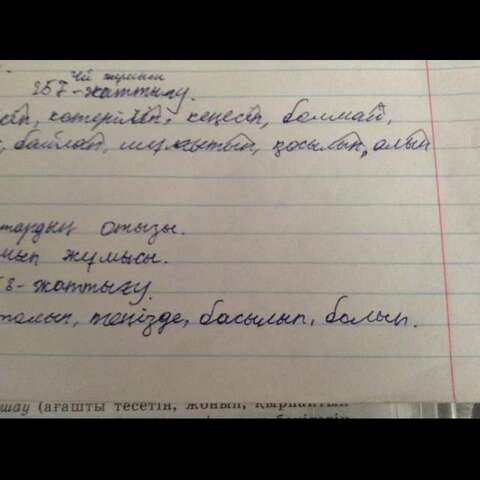 Үй жұмысы
257-жаттығу.
көтеріліп, кеңесіп, болмай,
байлап, шұқытып, қосылып, алып
тардың отызы.
жұмысы.
8-жаттығу.
талып, теңізде, басылып, болып.
шау (ағашты тесетін, жонып, қырнайтын